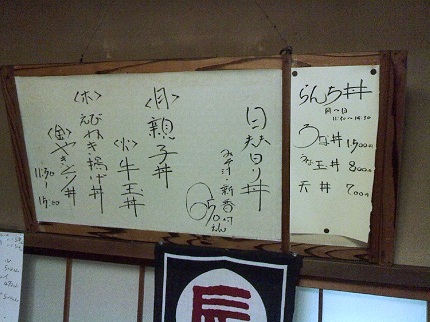 らんち丼
月〜日
11:30〜14:30
うな丼 1,500円
うな玉丼 800円
天丼 700円
日替り丼
みそ汁・新香付
650えん
<月>親子丼
<火>牛玉丼
<木>えびねぎ揚げ丼
<金>やきとり丼
11:30
〜
15:00
辰